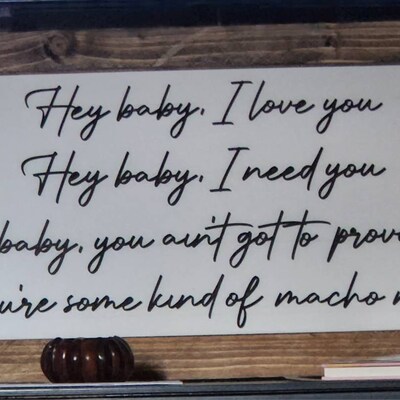 Hey baby, I love you
Hey baby, I need you
baby, you ain't got to
some kind of macho